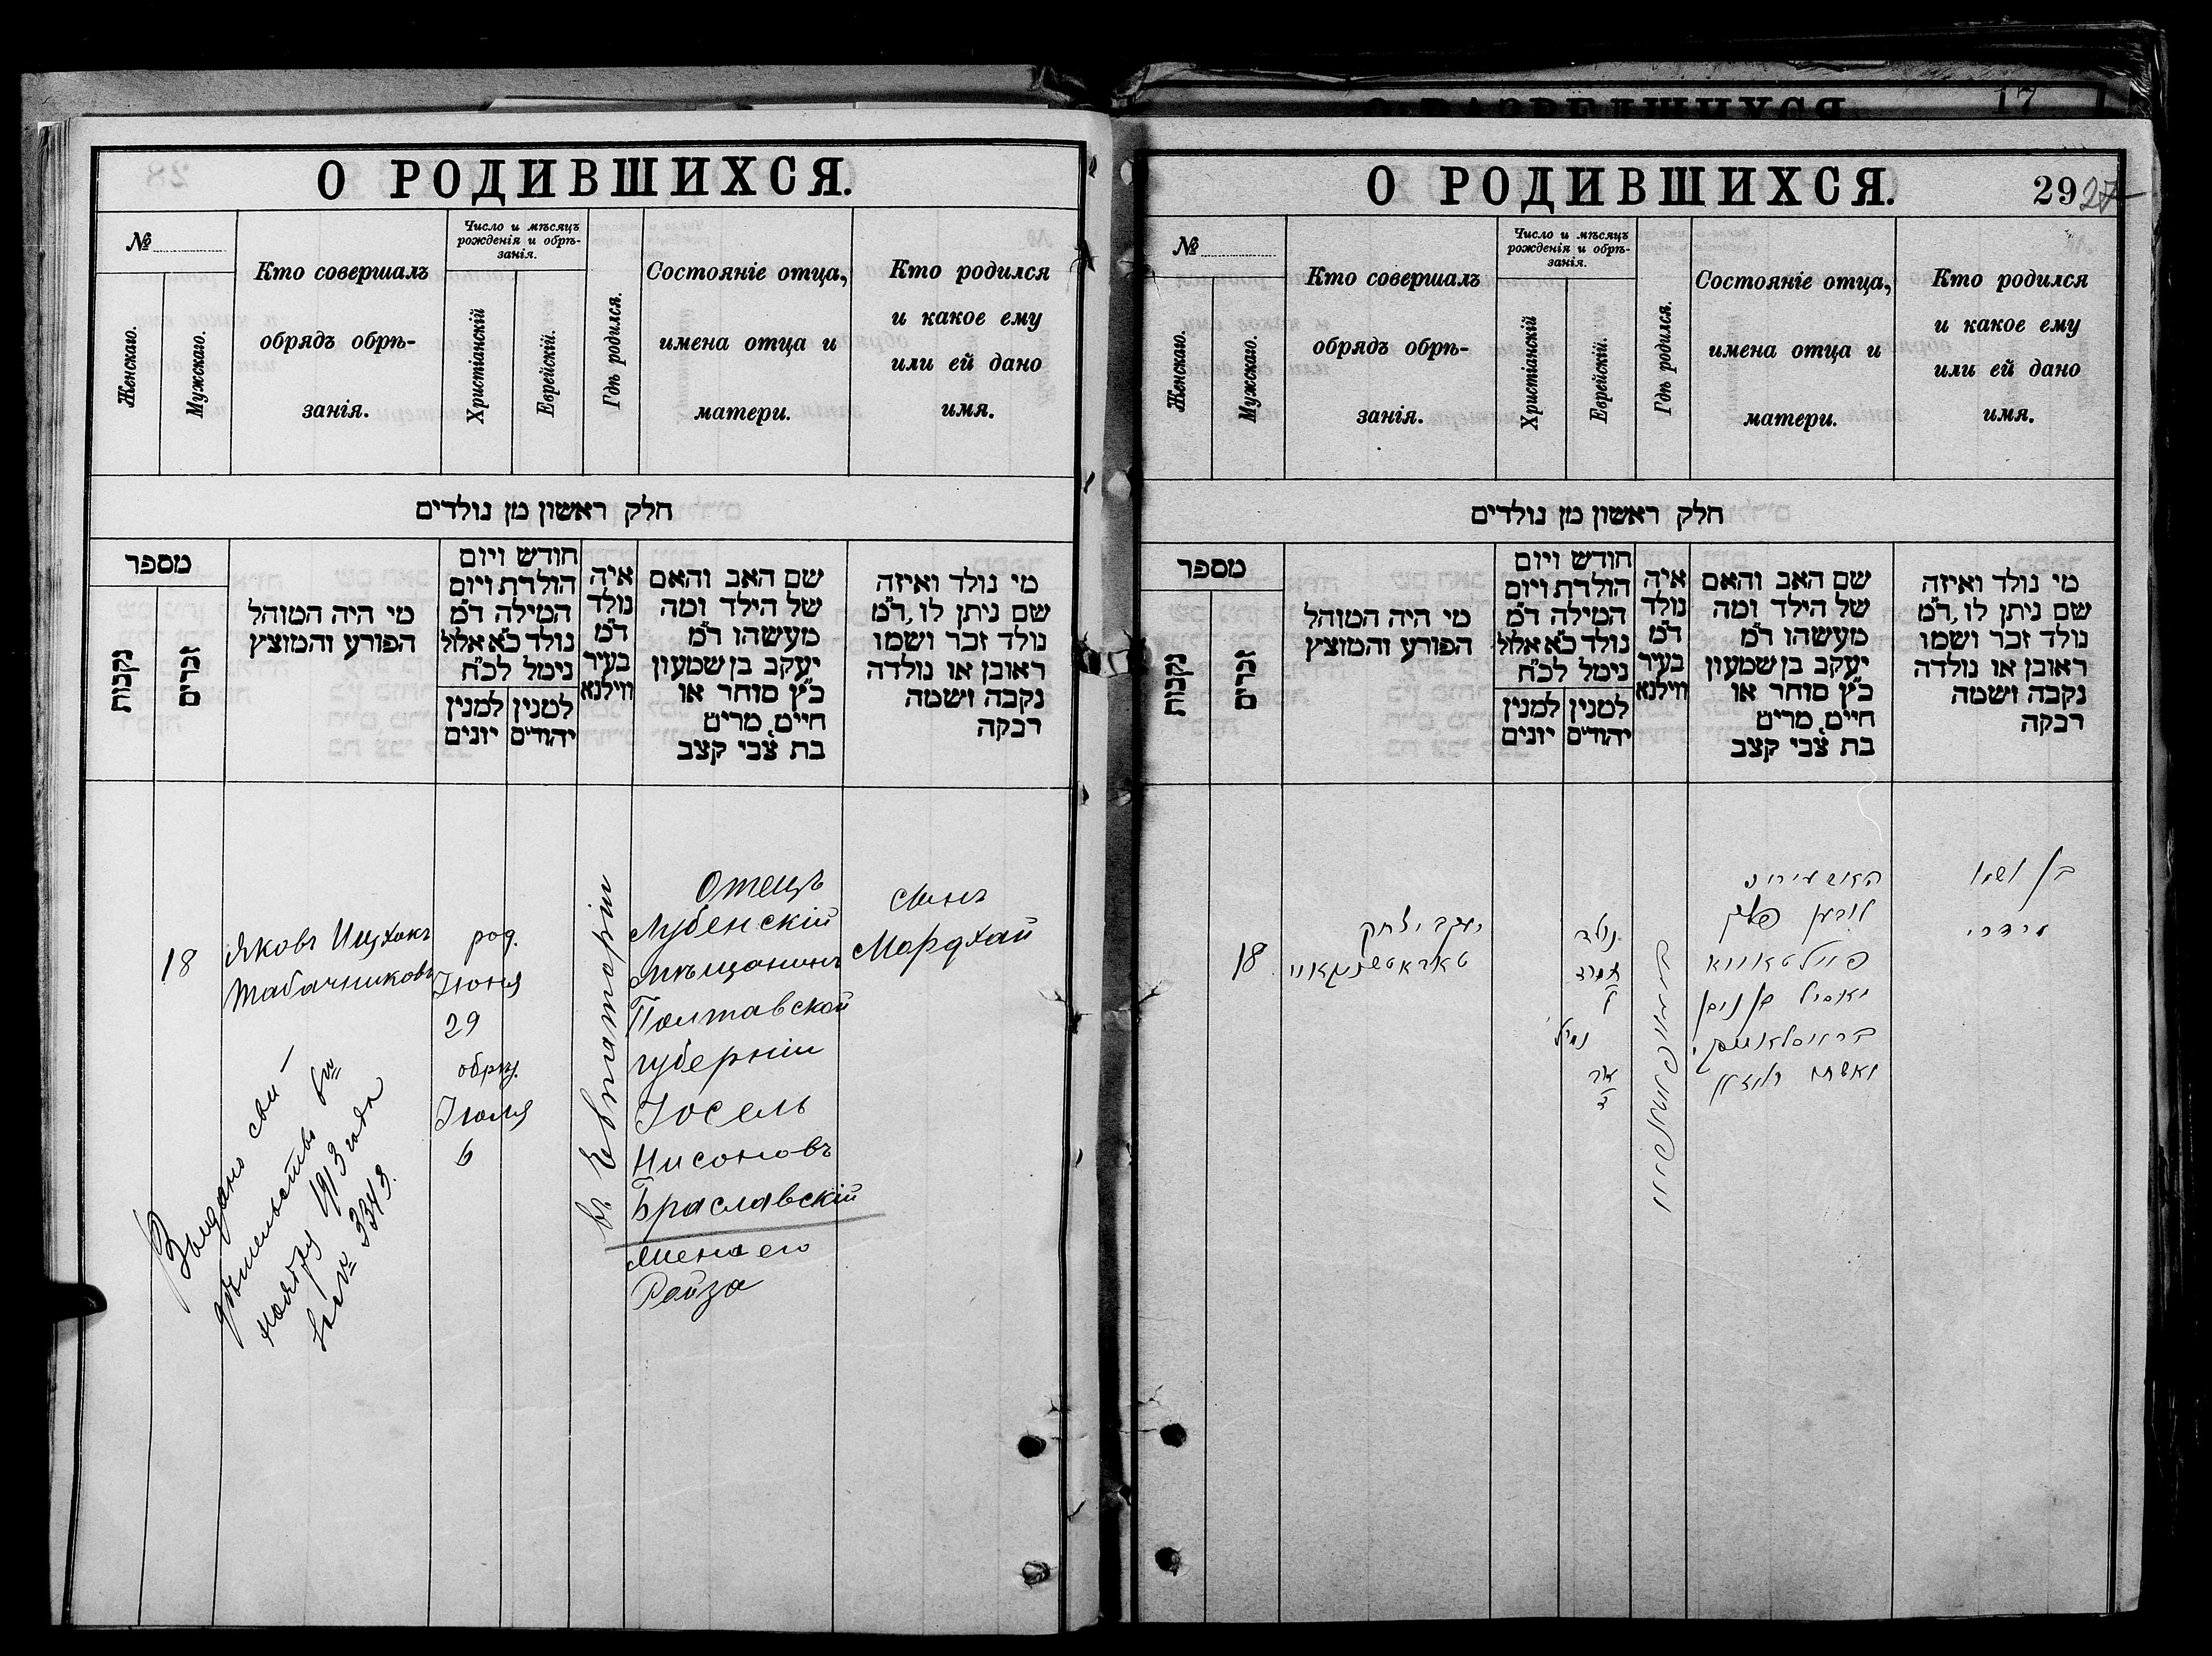 О РОДИВШИХСЯ.
№
Женскаго.
Мужскаго.
Кто совершалъ
обрядъ обрѣ-
занія.
Число и мѣсяцъ
рожденія и обрѣ-
занія.
Христіанскій
Еврейскій.
Гдѣ родился.
Состояніе отца,
имена отца и
матери.
Кто родился
и какое ему
или ей дано
имя.
חלק ראשון מן נולדים
מספר
נקבות
זכרים
מי היה המוהל
הפורע והמוצץ
חודש ויום
הולדת ויום
המילה ד״מ
נולד כ״א אלול
נימל לכ״ח
למנין
יונים
למנין
יהודים
איה
נולד
ד״מ
בעיר
ווילנא
שם האב והאם
של הילד ומה
מעשהו ד״מ
יעקב בן שמעון
כ״ץ סוחר או
חיים, מרים
בת צבי קצב
מי נולד ואיזה
שם ניתן לו, ד״מ
נולד זכר ושמו
ראובן או נולדה
נקבה ושמה
רבקה
18
Яковъ Ицхокъ
Табачниковъ
род.
Іюня
29
обрѣз.
Іюля
6
въ Евпаторіи
Отецъ
Лубенскій
мѣщанинъ
Полтавской
губерніи
Іосель
Нисоновъ
Браславскій
жена его
Рейза
сынъ
Мордхай
Выдано сви-
дѣтельство
ноября 1913 года
за № 3343.
О РОДИВШИХСЯ.
29
27
17
№
Женскаго.
Мужскаго.
Кто совершалъ
обрядъ обрѣ-
занія.
Число и мѣсяцъ
рожденія и обрѣ-
занія.
Христіанскій
Еврейскій.
Гдѣ родился.
Состояніе отца,
имена отца и
матери.
Кто родился
и какое ему
или ей дано
имя.
חלק ראשון מן נולדים
מספר
נקבות
זכרים
מי היה המוהל
הפורע והמוצץ
חודש ויום
הולדת ויום
המילה ד״מ
נולד כ״א אלול
נימל לכ״ח
למנין
יונים
למנין
יהודים
איה
נולד
ד״מ
בעיר
ווילנא
שם האב והאם
של הילד ומה
מעשהו ד״מ
יעקב בן שמעון
כ״ץ סוחר או
חיים, מרים
בת צבי קצב
מי נולד ואיזה
שם ניתן לו, ד״מ
נולד זכר ושמו
ראובן או נולדה
נקבה ושמה
רבקה
18
יעקב יצחק
נולד
נימול
פולטאווא
יאסיל בן ניסן
בראסלאווסקי
ואשתו רייזא
בן ושמו
מרדכי